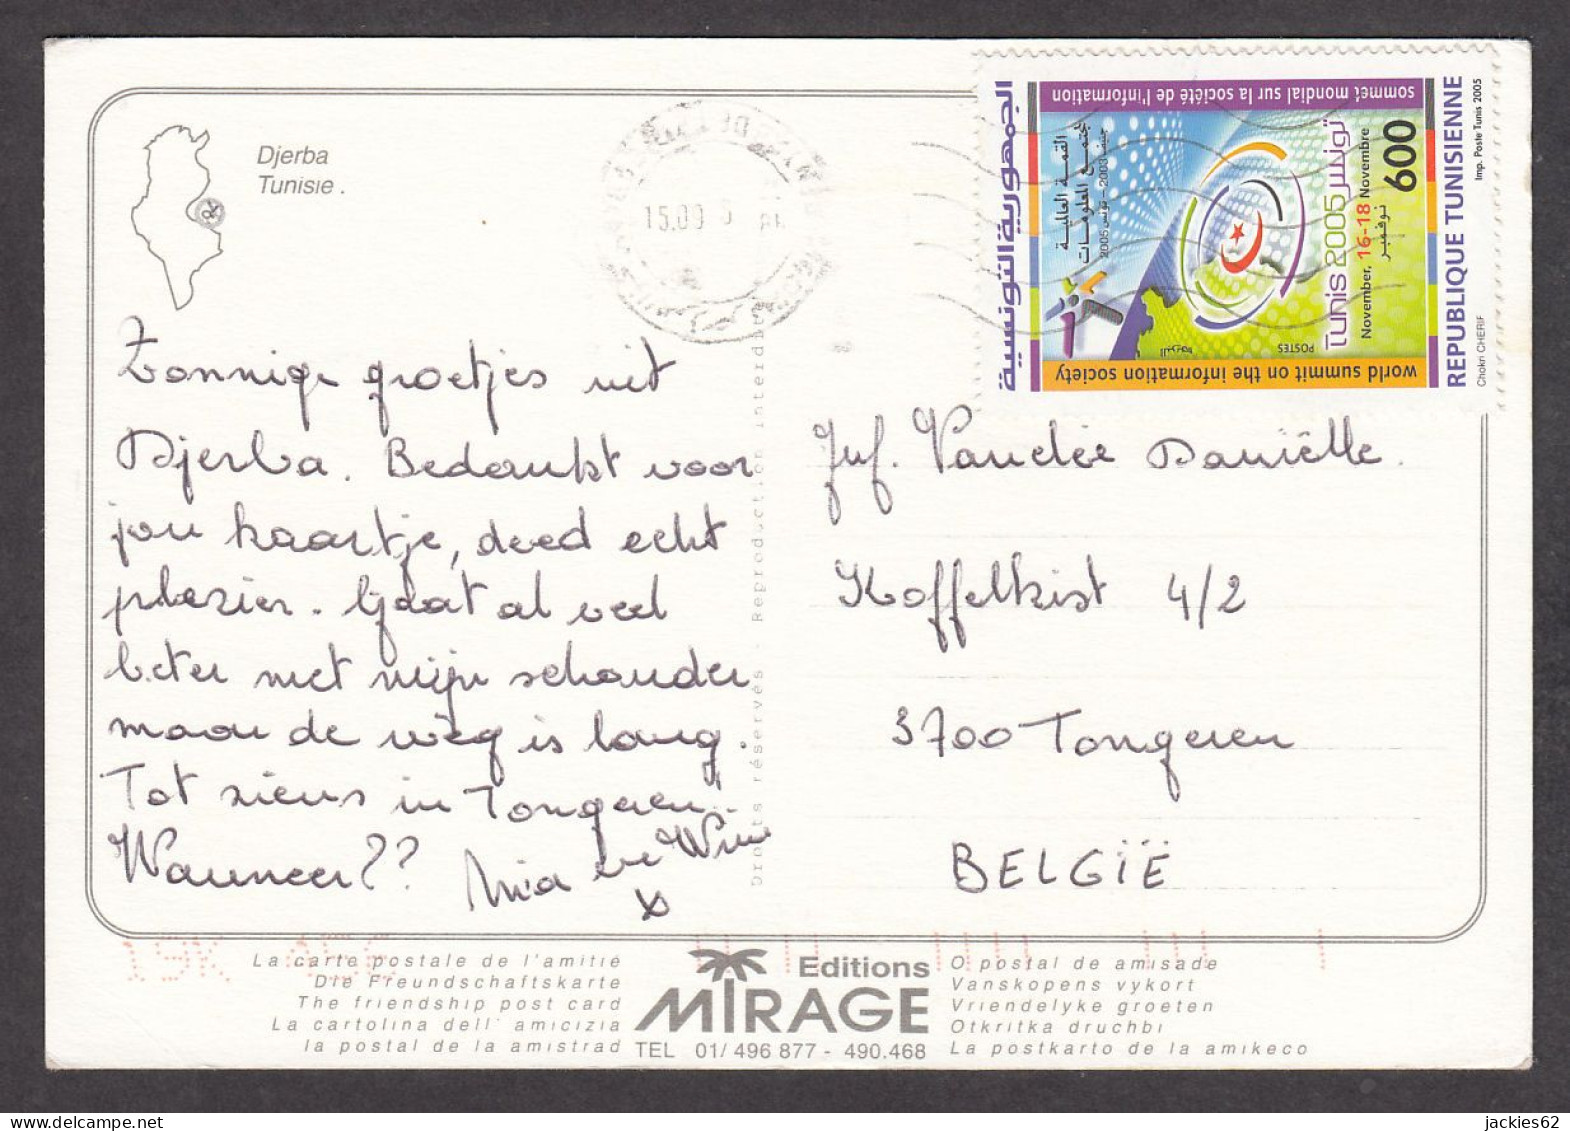 Djerba
Tunisie .
15.09 5
الجمهورية التونسية
sommet mondial sur la société de l'information
القمة العالمية
لمجتمع المعلومات
جنيف 2003 - تونس 2005
تونس
Tunis 2005
November, 16-18 Novembre
نوفمبر
600
POSTES
البريد
world summit on the information society
REPUBLIQUE TUNISIENNE
Imp. Poste Tunis 2005
Chokri CHERIF
Zonnige groetjes uit
Djerba. Bedankt voor
jou kaartje, deed echt
plezier. Gaat al veel
beter met mijn schouder
maar de weg is lang.
Tot ziens in Tongeren.
Wanneer??
Mia en Wim
x
Droits réservés - Reproduction interdite
Juf. Vandée Daniëlle.
Koffelkist 4/2
3700 Tongeren
BELGIË
La carte postale de l'amitié
Die Freundschaftskarte
The friendship post card
La cartolina dell' amicizia
la postal de la amistrad
Editions
MIRAGE
TEL 01/ 496 877 - 490.468
O postal de amisade
Vanskopens vykort
Vriendelyke groeten
Otkritka druchbi
La postkarto de la amikeco
jackies62